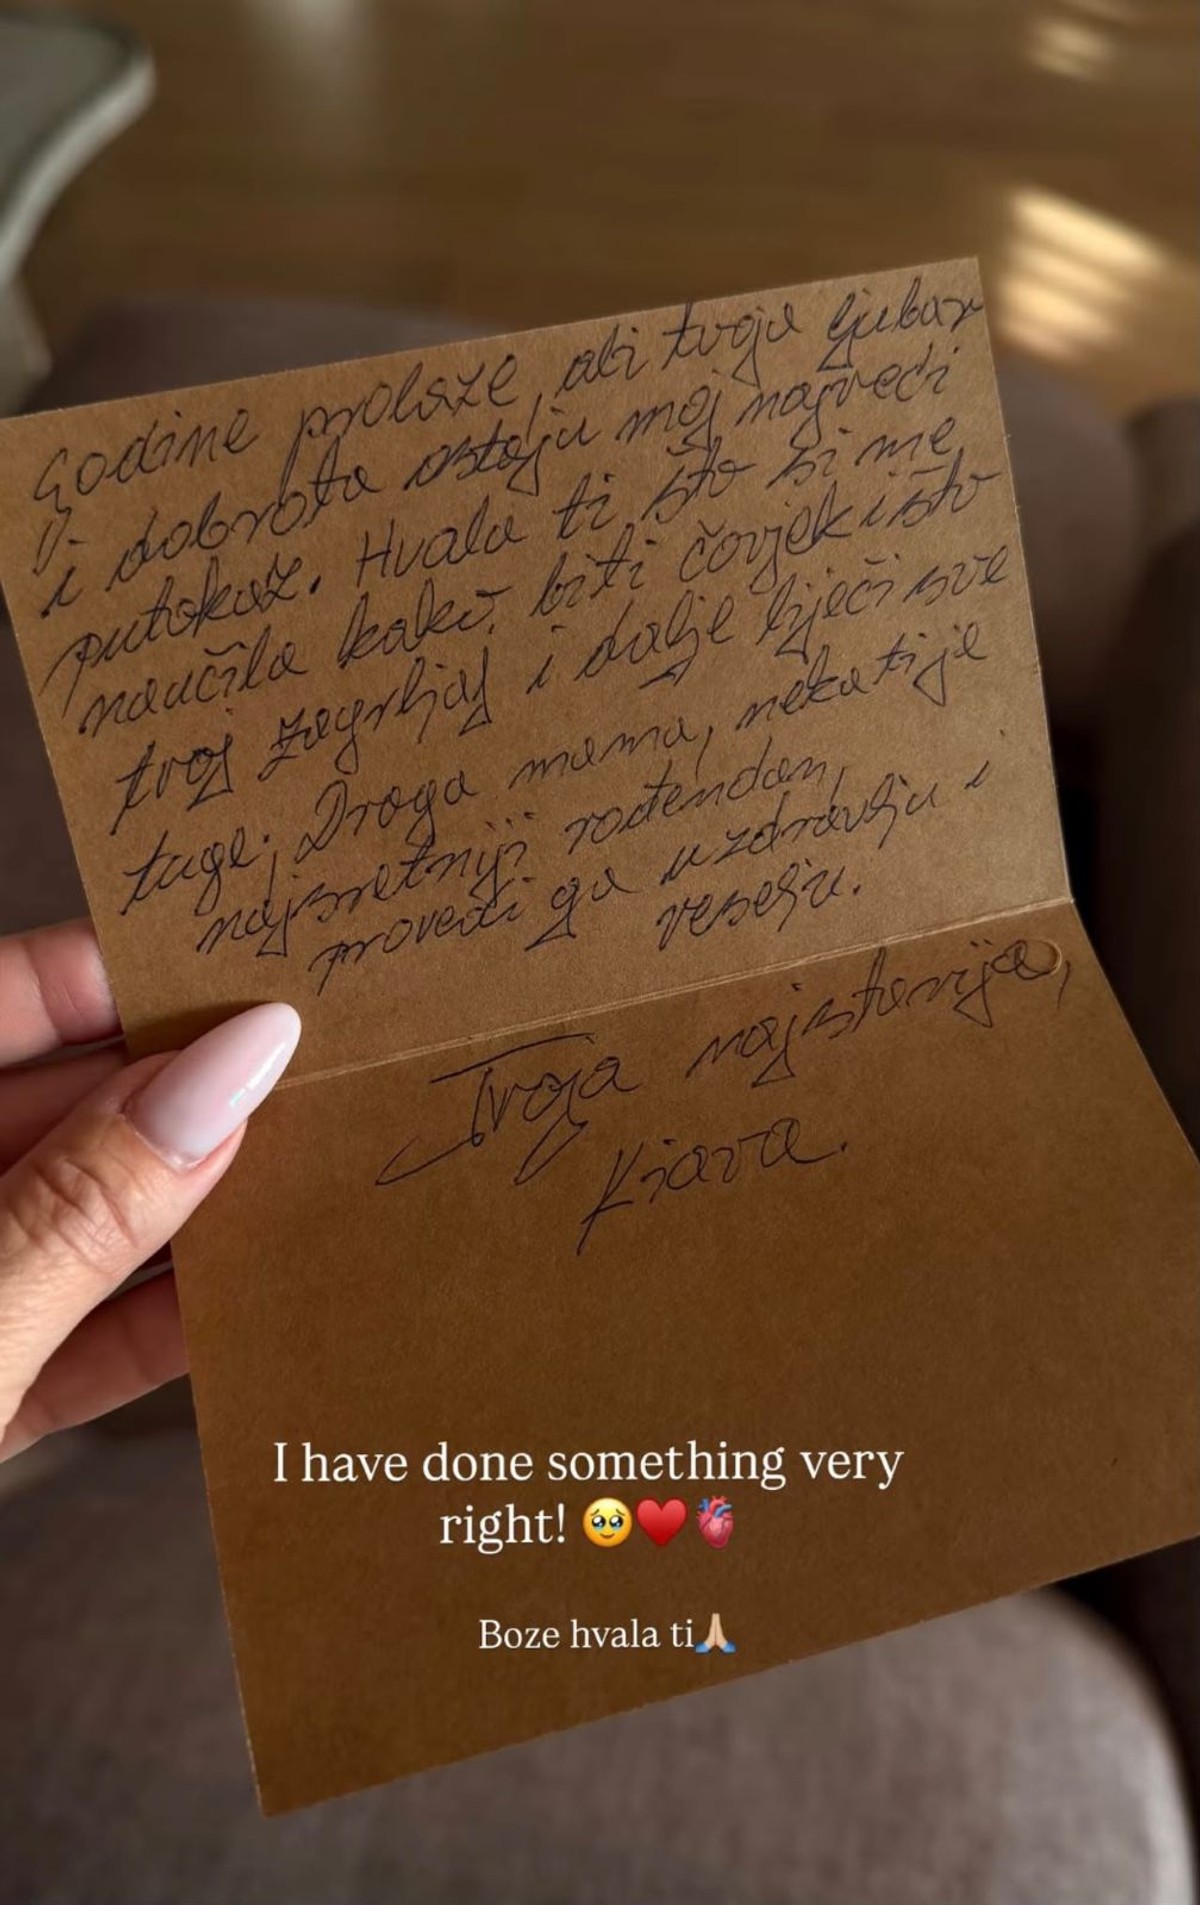 Godine prolaze, ali tvoja ljubav
i dobrota ostaju moj najveći
putokaz. Hvala ti što si me
naučila kako biti čovjek i što
tvoj zagrljaj i dalje liječi sve
tuge. Draga mama, neka ti je
najsretniji rođendan,
provedi ga u zdravlju i
veselju.
Tvoja najstarija,
Kiara.
I have done something very
right! 🥹♥️🫀
Boze hvala ti🙏🏼